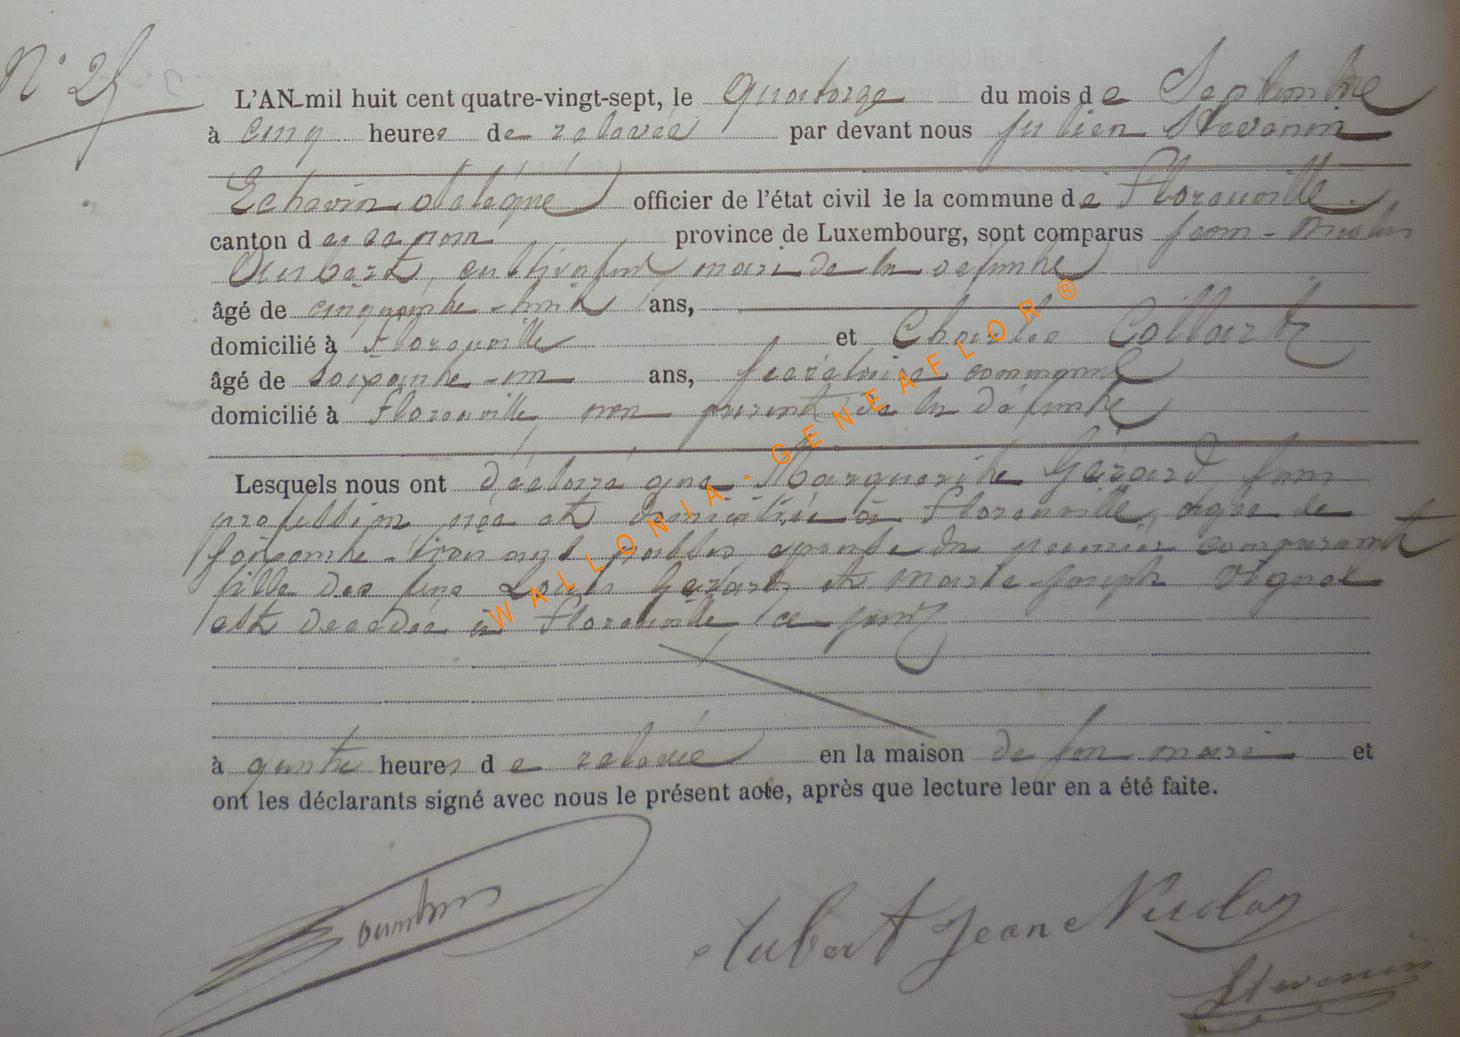 N° 25
L'AN mil huit cent quatre-vingt-sept, le quatorze du mois de Septembre
à cinq heures de relevée par devant nous Julien Stevenin
Echevin délégué officier de l'état civil de la commune de Florenville
canton de province de Luxembourg, sont comparus Jean-Nicolas
cultivateur, mari de la défunte
âgé de cinquante-huit ans,
domicilié à Florenville et Charles Collart
âgé de soixante-un ans, secrétaire communal
domicilié à Florenville, non parent de la défunte
Lesquels nous ont déclaré que Marguerite Gérard sans
profession, née et domiciliée à Florenville, âgée de
soixante-trois ans passés épouse du premier comparant
fille des feus Louis Gérard et Marie-Joseph
est décédée à Florenville, ce jour
à quatre heures de relevée en la maison de son mari et
ont les déclarants signé avec nous le présent acte, après que lecture leur en a été faite.
Hubert Jean Nicolas
Stevenin
WALLONIA - GENEAFLOR ®